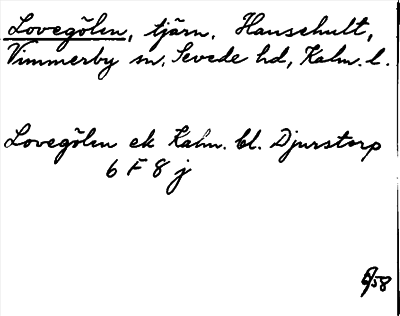 Lovegölen, tjärn, Hansehult,
Vimmerby sn, Sevede hd, Kalm. l.
Lovegölen ek Kalm. bl. Djurstorp
6 F 8 j